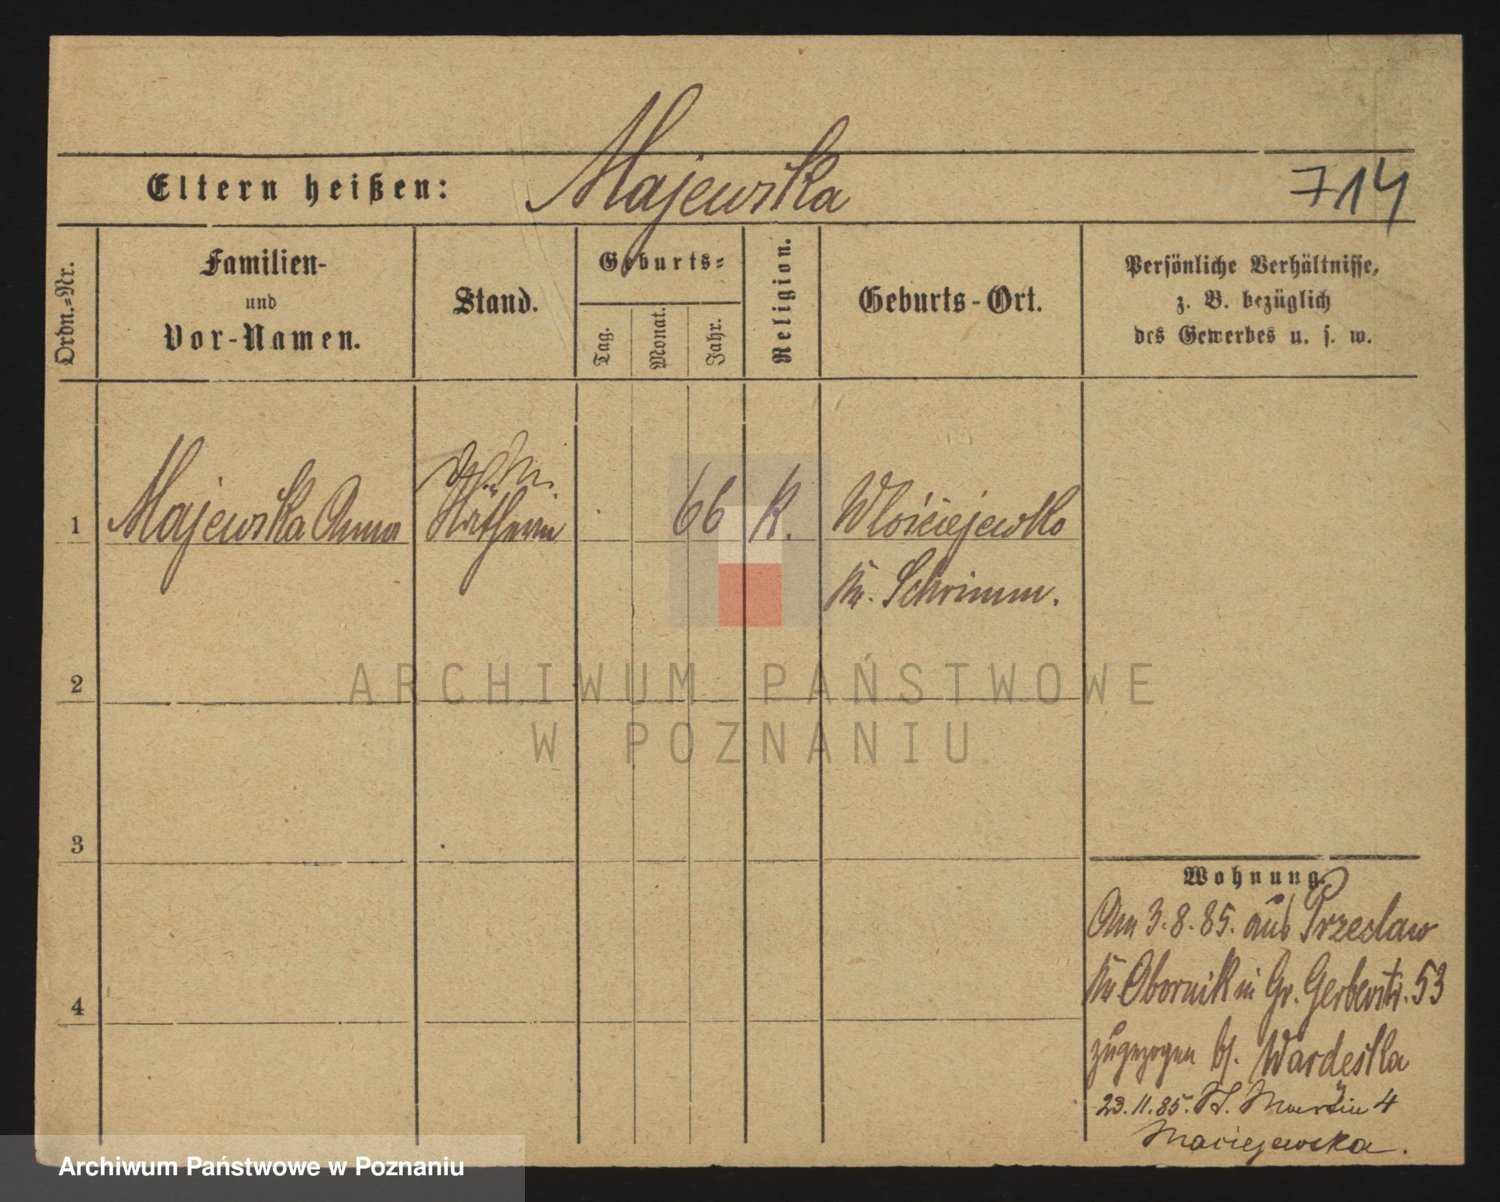 Majewska
Eltern heißen:
714
Ordn.=Nr.
Familien-
und
Vor-Namen.
Stand.
Geburts=
Tag.
Monat.
Jahr.
Religion.
Geburts-Ort.
Persönliche Verhältnisse,
z. B. bezüglich
des Gewerbes u. s. w.
1
Majewska Anna
Näherin
66
K.
Włościejewko
Kr. Schrimm.
2
3
4
ARCHIWUM PAŃSTWOWE
W POZNANIU
Wohnung.
Am 3.8.85. aus Przeclaw
Kr. Obornik in Gr. Gerberstr. 53
zugezogen bj. Wardeska
23.11.85. St. Martin 4
Maciejewska.
Archiwum Państwowe w Poznaniu